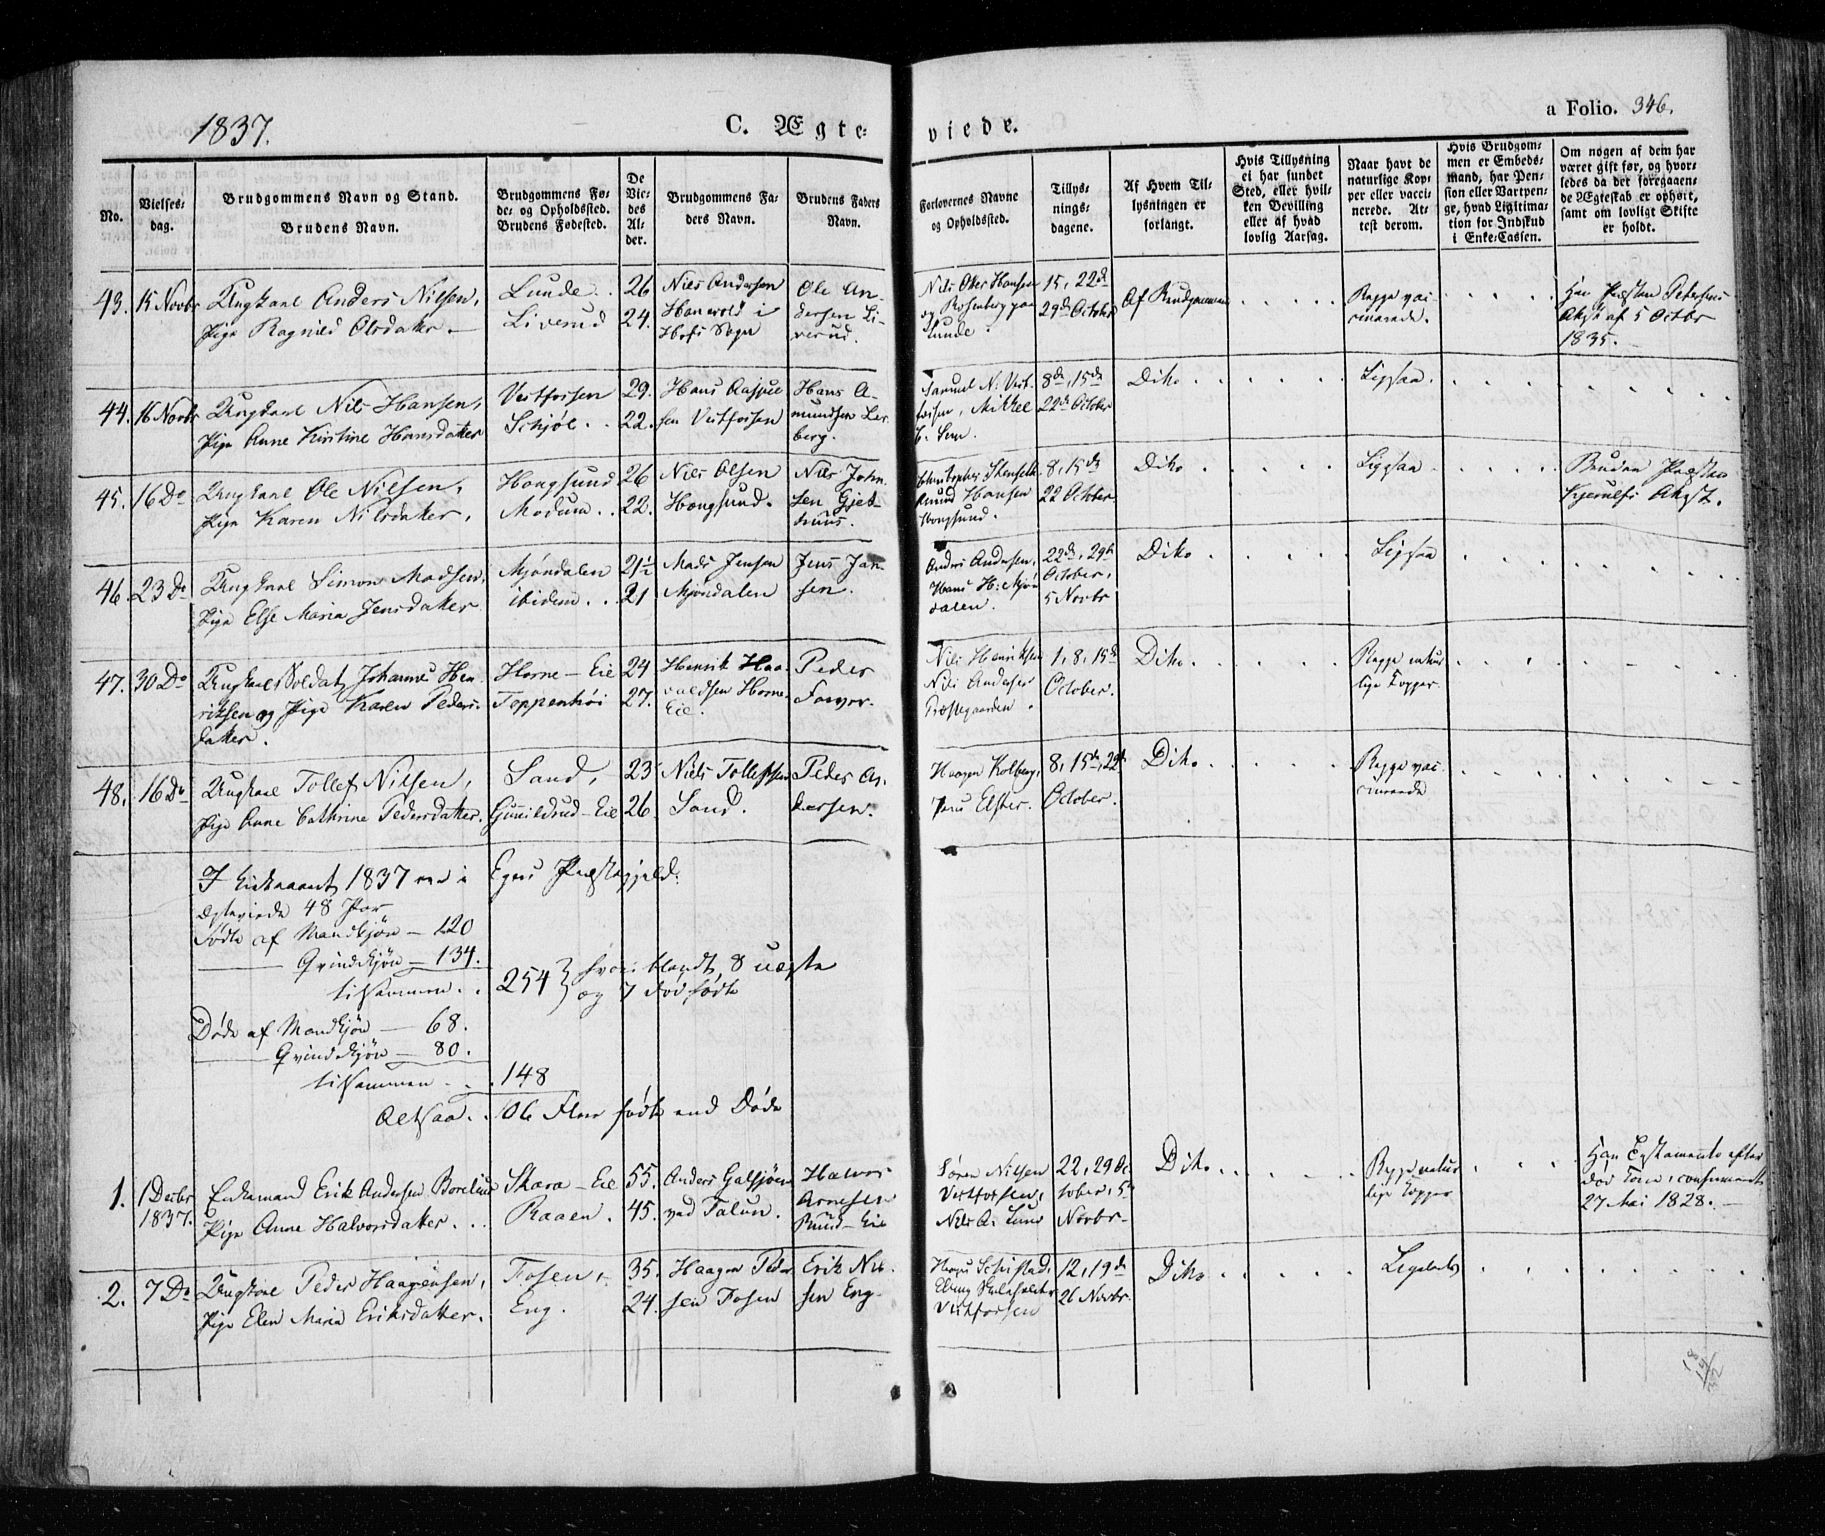 1837.
C. Ægte-
viede.
a Folio. 346.
No.
Vielses-
dag.
Brudgommens Navn og Stand.
Brudens Navn.
Brudgommens Fø-
de- og Opholdssted.
Brudens Fødested.
De
Vie-
des
Al-
der.
Brudgommens Fa-
ders Navn.
Brudens Faders
Navn.
Forlovernes Navne
og Opholdssted.
Tillys-
nings-
dagene.
Af Hvem Til-
lysningen er
forlangt.
Hvis Tillysning
ei har fundet
Sted, eller hvil-
ken Bevilling
eller af hvad
lovlig Aarsag.
Naar havt de
naturlige Kop-
per eller vacci-
nerede. At-
test derom.
Hvis Brudgom-
men er Embeds-
mand, har Pen-
sion eller Vartpen-
ge, hvad Legitima-
tion for Indskud
i Enke-Cassen.
Om nogen af dem har
været gift før, og hvor-
ledes da det foregaaen-
de Ægteskab er ophørt,
samt om lovligt Skifte
er holdt.
43. 15 Novbr Ungkarl Anders Nilsen,
Pige Ragnild Olsdatter.
Lunde.
Liverud
26
24.
Nils Andersen
Hanevold i
Hofs Sogn
Ole An-
dersen Li-
verud.
Nils Olves Hansen
og Rosenberg paa
Lunde.
15, 22de
29de October
Af Brudgommen
Begge vac-
cinerede.
Han Præsten Petersens
Attest af 5 Octbr
1835.
44. 16 Novbr Ungkarl Nils Hansen,
Pige Anne Kirstine Hansdatter
Vestfossen
Schjøl
29.
22.
Hans
sen Vestfossen
Hans A-
mundsen Ler-
berg.
Samuel N: Vest-
fossen, Mikkel
8de, 15de
22de October
Dito
Ligesaa.
45. 16 Do Ungkarl Ole Nilsen,
Pige Karen Nilsdatter,
Hougsund
Modum
26
22.
Nils Olsen
Hougsund.
Nils John-
sen
Christopher Stenseth
Amund Hansen
Hougsund.
8, 15de
22 October
Dito
Ligesaa
Bruden Præsten
Kjerulfs Attst.
46. 23 Do Ungkarl Simon Madsen,
Pige Else Maria Jensdatter
Mjøndalen
ibidem
21½
21
Mads Jensen
Mjøndalen
Jens Jan-
sen.
Anders Andersen,
Hans H: Mjøn-
dalen.
22de, 29de
October,
5 Novbr
Dito
Ligesaa
47. 30 Do Ungkarl Soldat Johannes Hen-
riksen og Pige Karen Peders-
datter.
Horne-Eie
Toppenhøi
24
27.
Henrik Haa-
valdsen Horne-
Eie.
Peder
Nils Henriksen
Nils Andersen
Præstegaarden
1, 8, 15de
October.
Dito.
Begge natur-
lige Kopper.
48. 16 Do Ungkarl Tollef Nilsen,
Pige Anne Cathrine Pedersdatter,
Sand,
Gunildrud-Eie
23
26
Niels Tollefsen
Sand.
Peder An-
dersen.
Haagen Kolberg,
Jens Elster.
8, 15de, 22de
October.
Dito
Begge vac-
cinerede
I Kirkeaaret 1837 var i Egers Præstegjeld:
ægteviede 48 Par
Fødte af Mandkjøn — 120
Qvindekjøn — 134.
tilsammen . . 254 } hvoriblandt, 8 uægte
og 7 dødfødte
Døde af Mandkjøn — 68.
Qvindekjøn — 80.
tilsammen . . . 148
Altsaa . . 106 Flere fødte end Døde
1. 1 Decbr
1837.
Enkemand Erik Andersen Borelius
Pige Anne Halvorsdatter.
Skara-Eie
Raaen.
55.
45.
Anders
ved Falun.
Halvor
Arnesen
Ruud-Eie
Søren Nilsen
Vestfossen,
Nils A: Lund
22, 29 Oc-
tober, 5te
Novbr.
Dito
Begge natur-
lige Kopper
Han Testamente efter
død Kone, confirmeret
27 Mai 1828.
2. 7 Do Ungkarl Peder Haagensen,
Pige Elen Maria Eriksdatter.
Fosen
Eng.
35.
24.
Haagen Peder-
sen Fosen
Erik Nil-
sen Eng.
Hans Schistad,
Vestfossen
12, 19de
26 Novbr.
Dito
Ligeledes